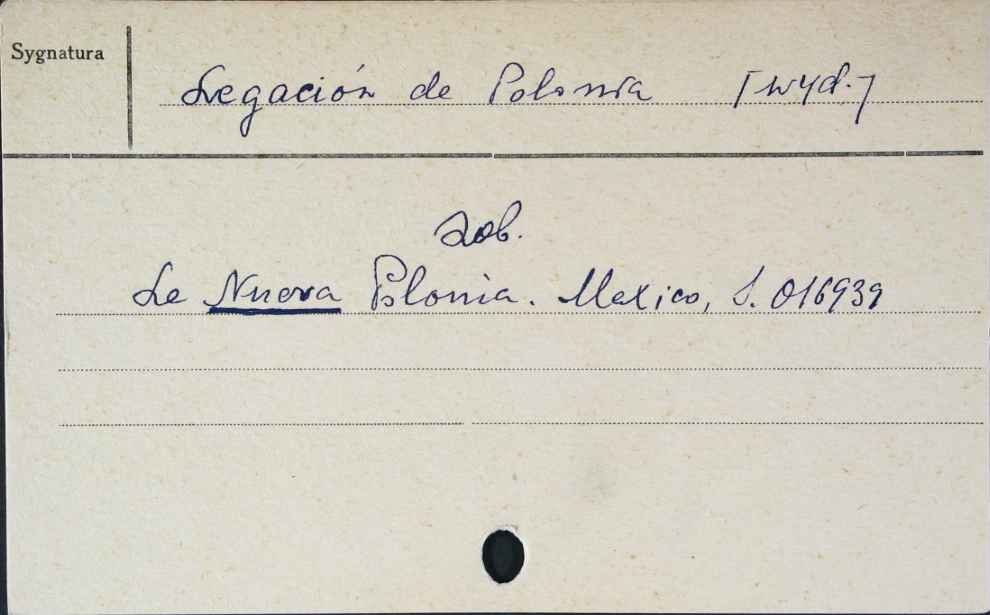 Sygnatura
Legación de Polonia [wyd.]
zob.
Le Nueva Polonia. Mexico, S. 016939